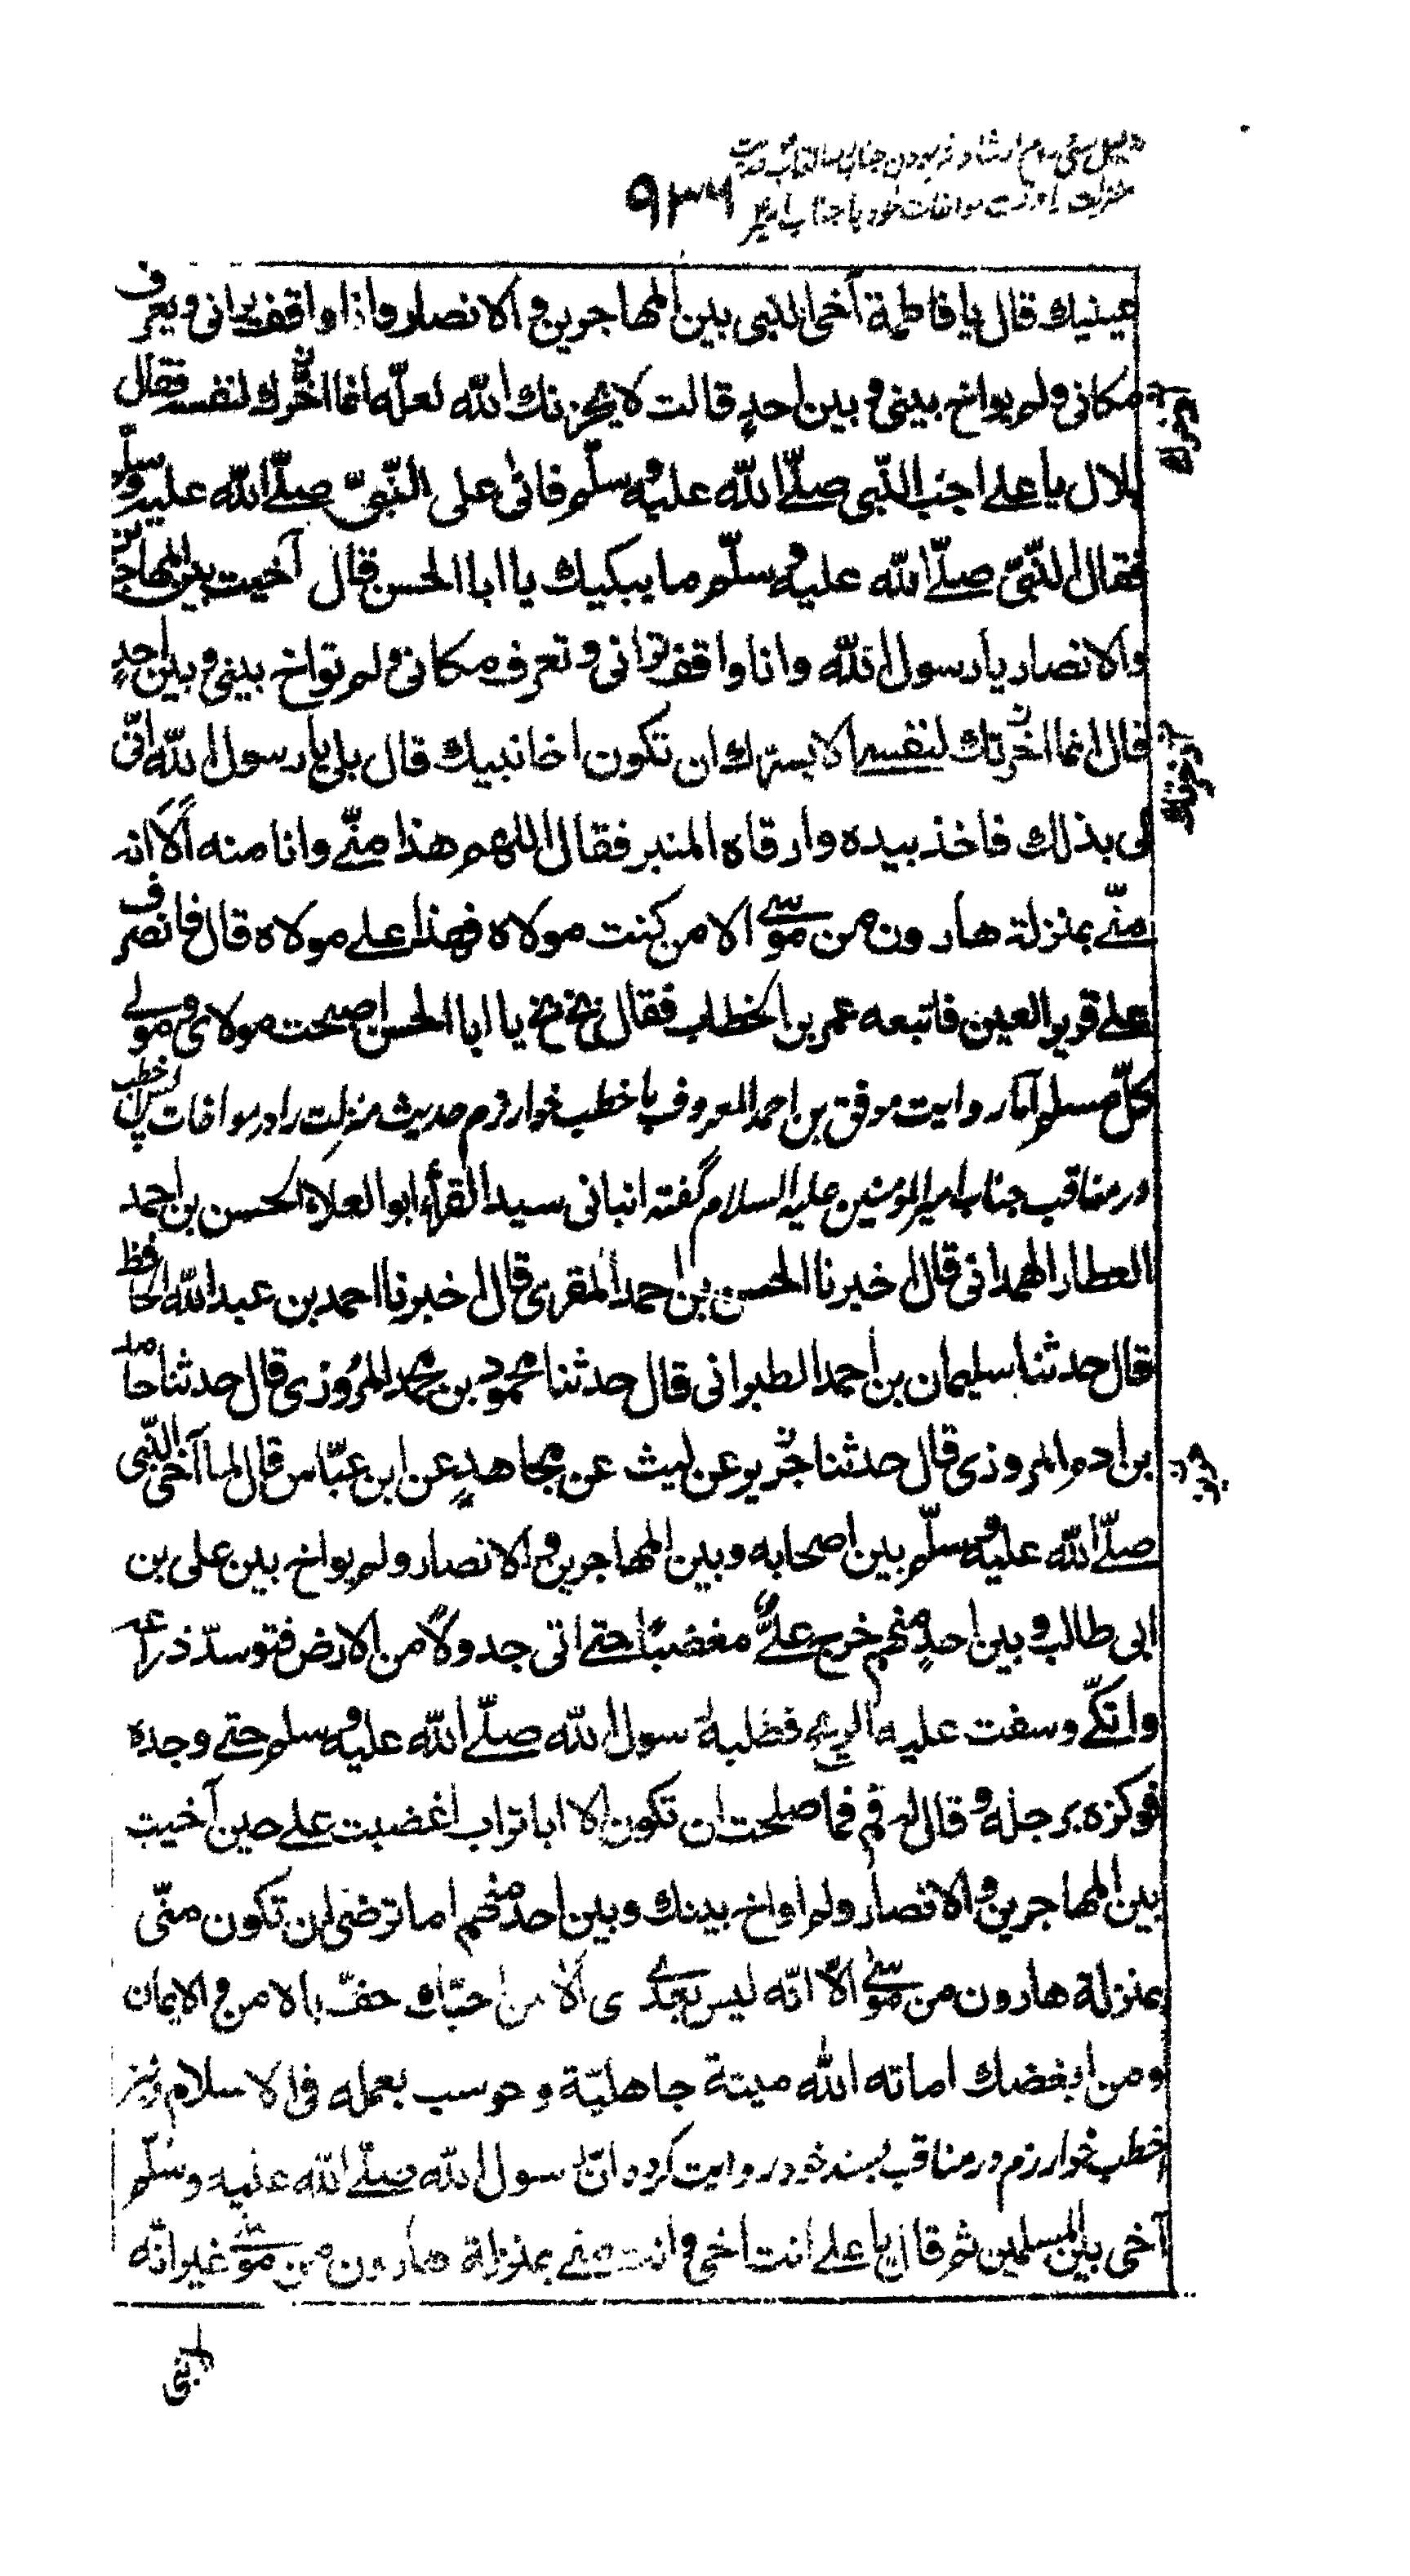 دلیل سی و سوم ارشاد فرمودن جناب رسالتمآب حدیث
منزلت را وقت مواخات خود با جناب امیر
۹۳۶
عينيك قال يا فاطمة آخى النبى بين المهاجرين و الانصار وانا واقف يرانى و يعرف
مكانى و لم يواخ بينى و بين احدٍ قالت لا يحزنك الله لعلّه انما اخّرك لنفسه فقال
بلال يا على اجب النّبى صلّى الله عليه و سلّم فاتى على النّبىّ صلّى الله عليه و سلّم
فقال النّبىّ صلّى الله عليه و سلّم ما يبكيك يا ابا الحسن قال آخيت بين المهاجرين
والانصار يا رسول الله وانا واقف ترانى و تعرف مكانى و لم تواخ بينى و بين احدٍ
قال انما اخّرتك لنفسى الا يسرّك ان تكون اخا نبيك قال بلى يا رسول الله انّى
لى بذلك فاخذ بيده وارقاه المنبر فقال اللهم هذا منّى وانا منه ألا انه
منّى بمنزلة هارون من موسى الا من كنت مولاه فهذا على مولاه قال فانصرف
على قرير العين فاتبعه عمر بن الخطاب فقال بخ بخ يا ابا الحسن اصبحت مولاى و مولى
كلّ مسلم اما روایت موفق بن احمد المعروف باخطب خوارزم حدیث منزلت را در مواخات پس اخطب
در مناقب جناب امیر المؤمنین علیه السلام گفته انبانى سيد القرّاء ابو العلاء الحسن بن احمد
العطار الهمدانى قال اخبرنا الحسن بن احمد المقرى قال اخبرنا احمد بن عبد الله الحافظ
قال حدثنا سليمان بن احمد الطبرانى قال حدثنا محمود بن محمد المروزى قال حدثنا حامد
بن ادم المروزى قال حدثنا جرير عن ليث عن مجاهدٍ عن ابن عبّاس قال لما آخى النّبى
صلّى الله عليه و سلّم بين اصحابه وبين المهاجرين و الانصار ولم يواخ بين على بن
ابى طالب و بين احدٍ منهم خرج علىٌّ مغضبًا حتى اتى جدولًا من الارض فتوسّد ذراعه
واتكّى وسفت عليه الريح فطلبه رسول الله صلّى الله عليه و سلم حتى وجده
فوكزه برجله و قال له قم فما صلحت ان تكون الا ابا تراب اغضبت على حين آخيت
بين المهاجرين و الانصار ولم اواخ بينك وبين احد منهم اما ترضى ان تكون منّى
بمنزلة هارون من موسى الّا انّه ليس بعدى الا من احبّك حفّ بالامن و الايمان
ومن ابغضك اماته الله ميتة جاهليّة و حوسب بعمله فى الاسلام ونیز
اخطب خوارزم در مناقب بسند خود روایت کرده ان رسول الله صلّى الله عليه وسلّم
آخى بين المسلمين ثم قال يا على انت اخى و انت منى بمنزلة هارون من موسى غير انّه